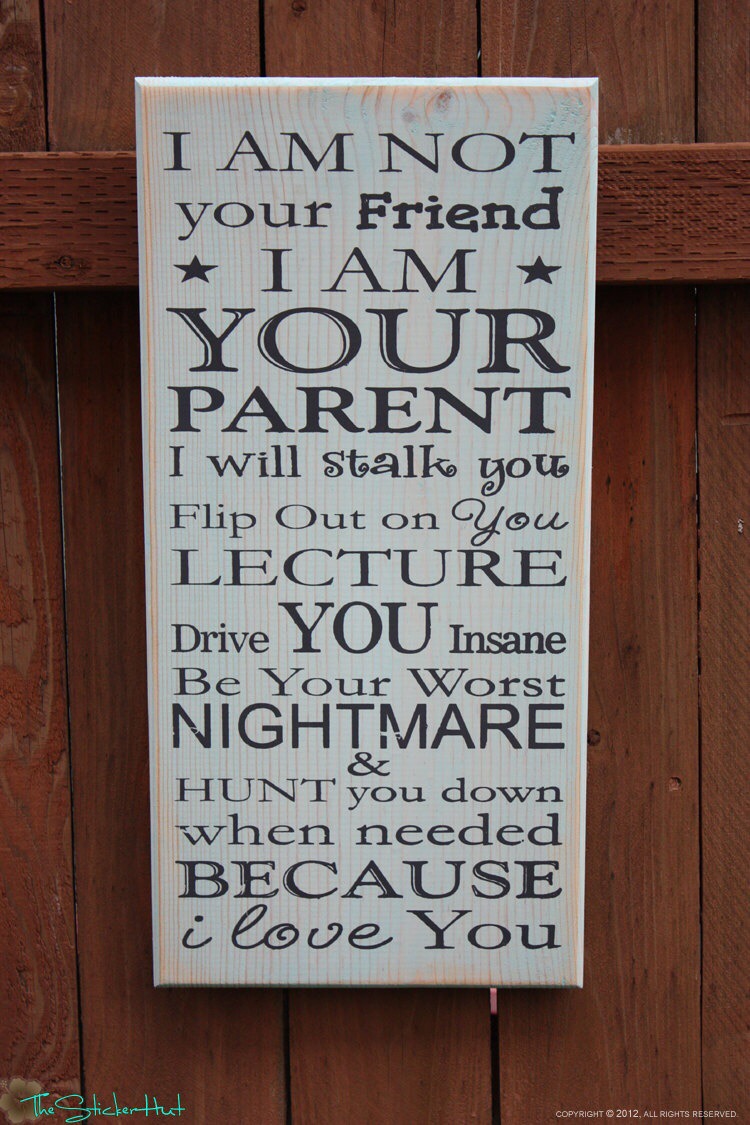 I AM NOT
your Friend
I AM
YOUR
PARENT
I will stalk you
Flip Out on You
LECTURE
Drive YOU Insane
Be Your Worst
NIGHTMARE
&
HUNT you down
when needed
BECAUSE
i love You
TheStickerHut
COPYRIGHT © 2012, ALL RIGHTS RESERVED.